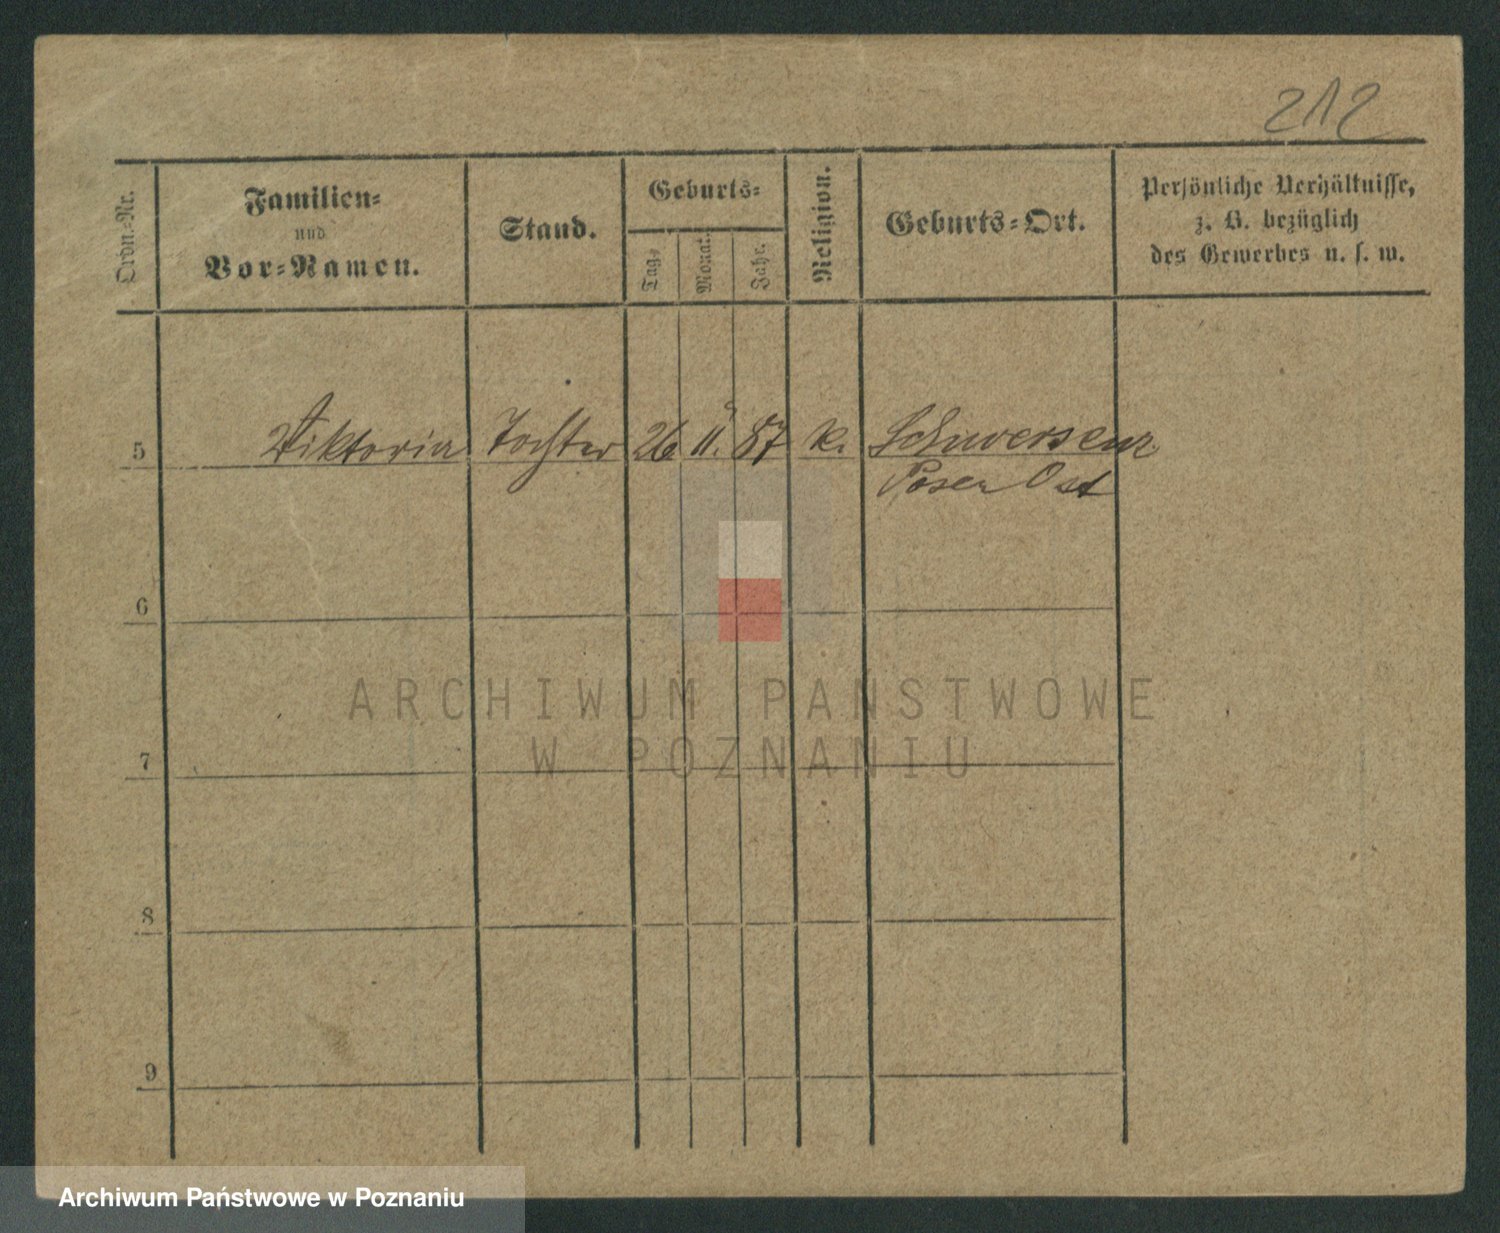 212
Ordn.-Nr.
Familien-
und
Vor-Namen.
Stand.
Geburts-
Tag.
Monat.
Jahr.
Religion.
Geburts-Ort.
Persönliche Verhältnisse,
z. B. bezüglich
des Gewerbes u. s. w.
5 Wiktoria Tochter 26 11. 87 k. Schwersenz
Posen Ost
6
7
8
9
ARCHIWUM PAŃSTWOWE
W POZNANIU
Archiwum Państwowe w Poznaniu